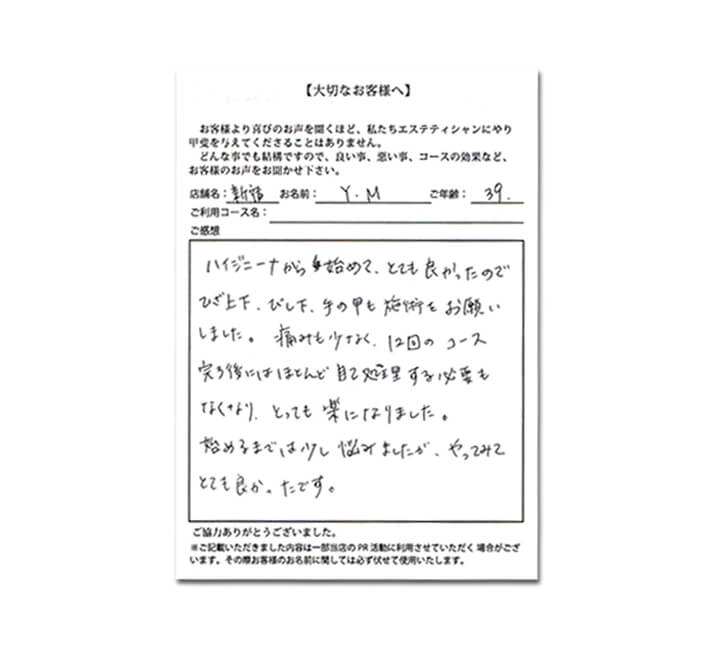 【大切なお客様へ】
お客様より喜びのお声を聞くほど、私たちエステティシャンにやり
甲斐を与えてくださることはありません。
どんな事でも結構ですので、良い事、悪い事、コースの効果など、
お客様のお声をお聞かせ下さい。
店舗名：新宿 お名前：Y.M ご年齢：39.
ご利用コース名：
ご感想
ハイジニーナから始めて、とても良かったので
ひざ上下、ひじ下、手の甲も施術をお願い
しました。痛みも少なく、12回のコース
完了後にはほとんど自己処理する必要も
なくなり、とっても楽になりました。
始めるまでは少し悩みましたが、やってみて
とても良かったです。
ご協力ありがとうございました。
※ご記載いただきました内容は一部当店のPR活動に利用させていただく場合がござ
います。その際お客様のお名前に関しては必ず伏せて使用いたします。